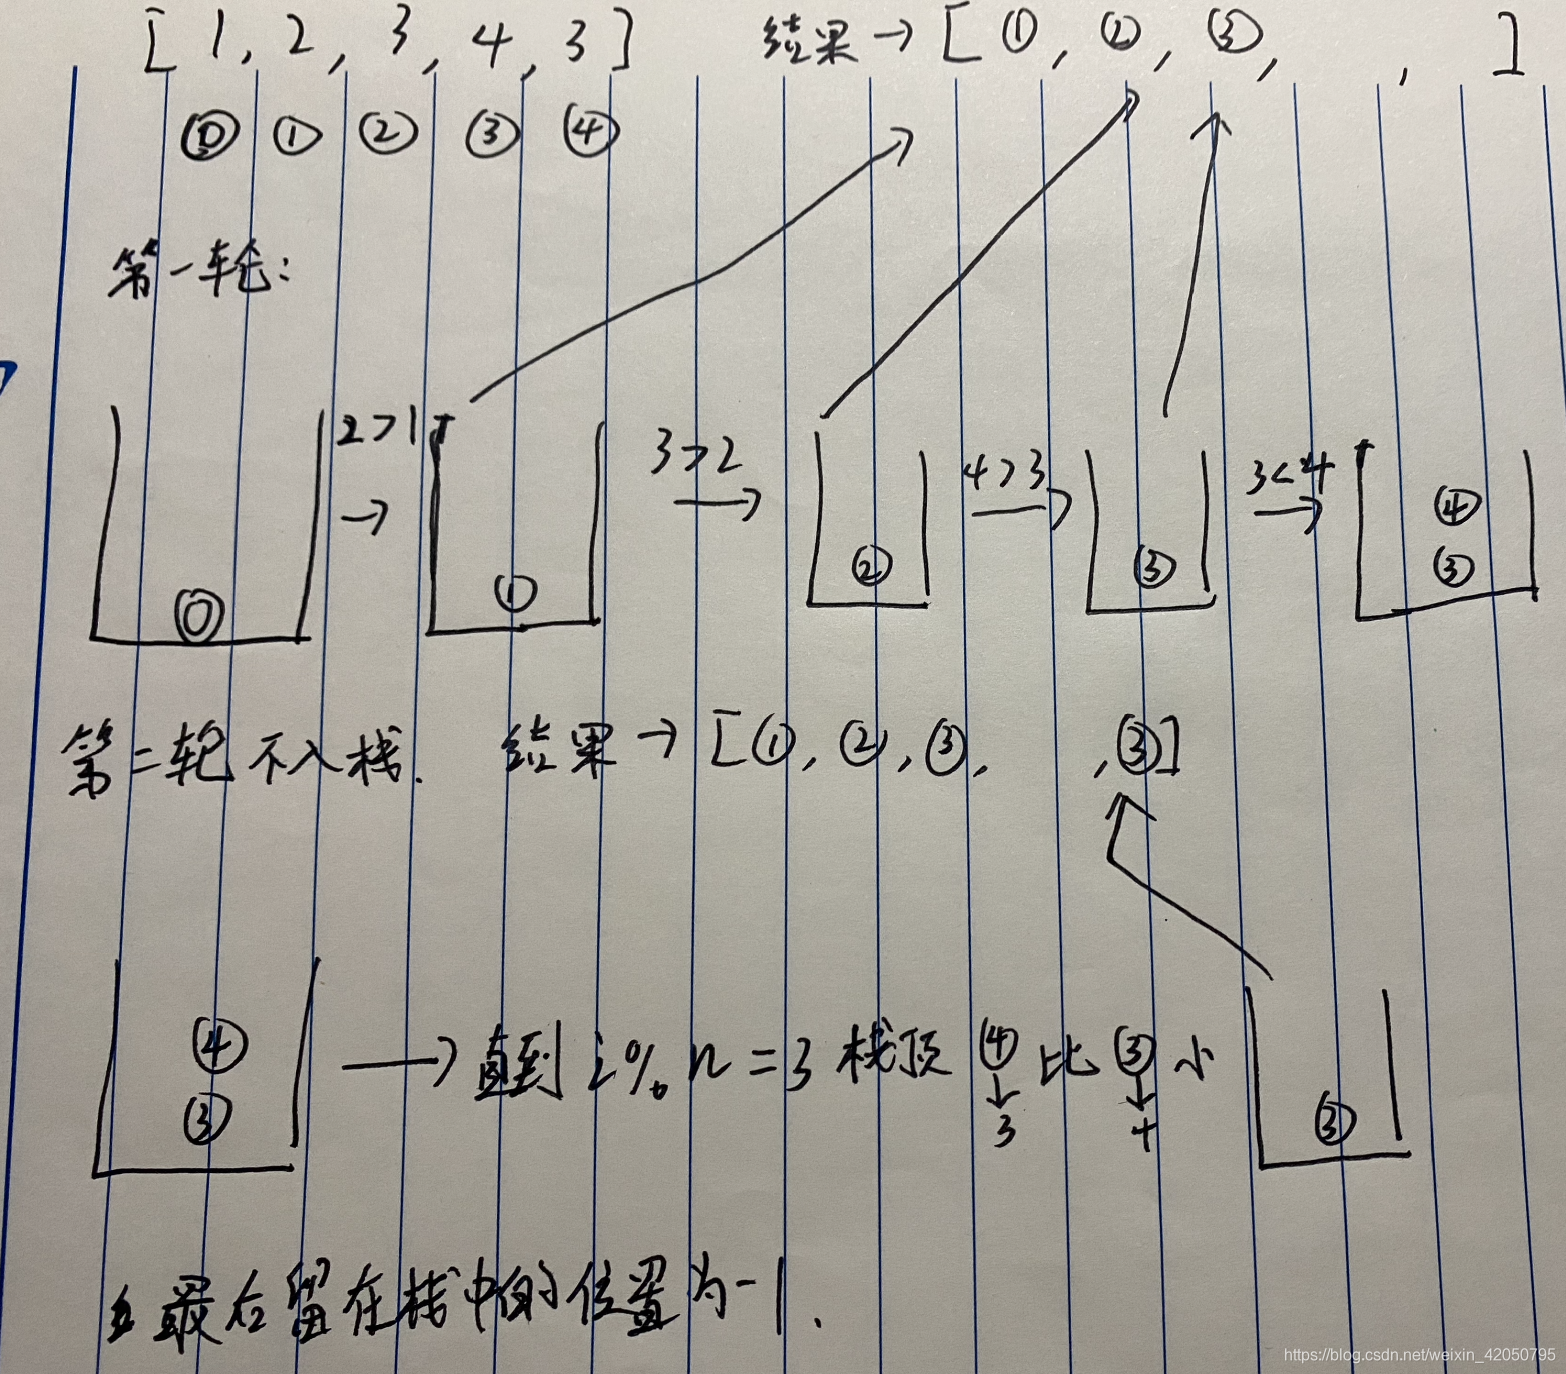 [1, 2, 3, 4, 3] 结果→[①, ②, ③, , ]
⓪ ① ② ③ ④
第一轮:
2>1 3>2 4>3 3<4
→ → → →
④
⓪ ① ② ③ ③
第二轮不入栈. 结果→[①, ②, ③, ,③]
④ → 直到 i%n=3 栈顶 ④ 比 ③ 小
③ ↓3 ↓4 ③
最后留在栈中的位置为-1.
https://blog.csdn.net/weixin_42050795